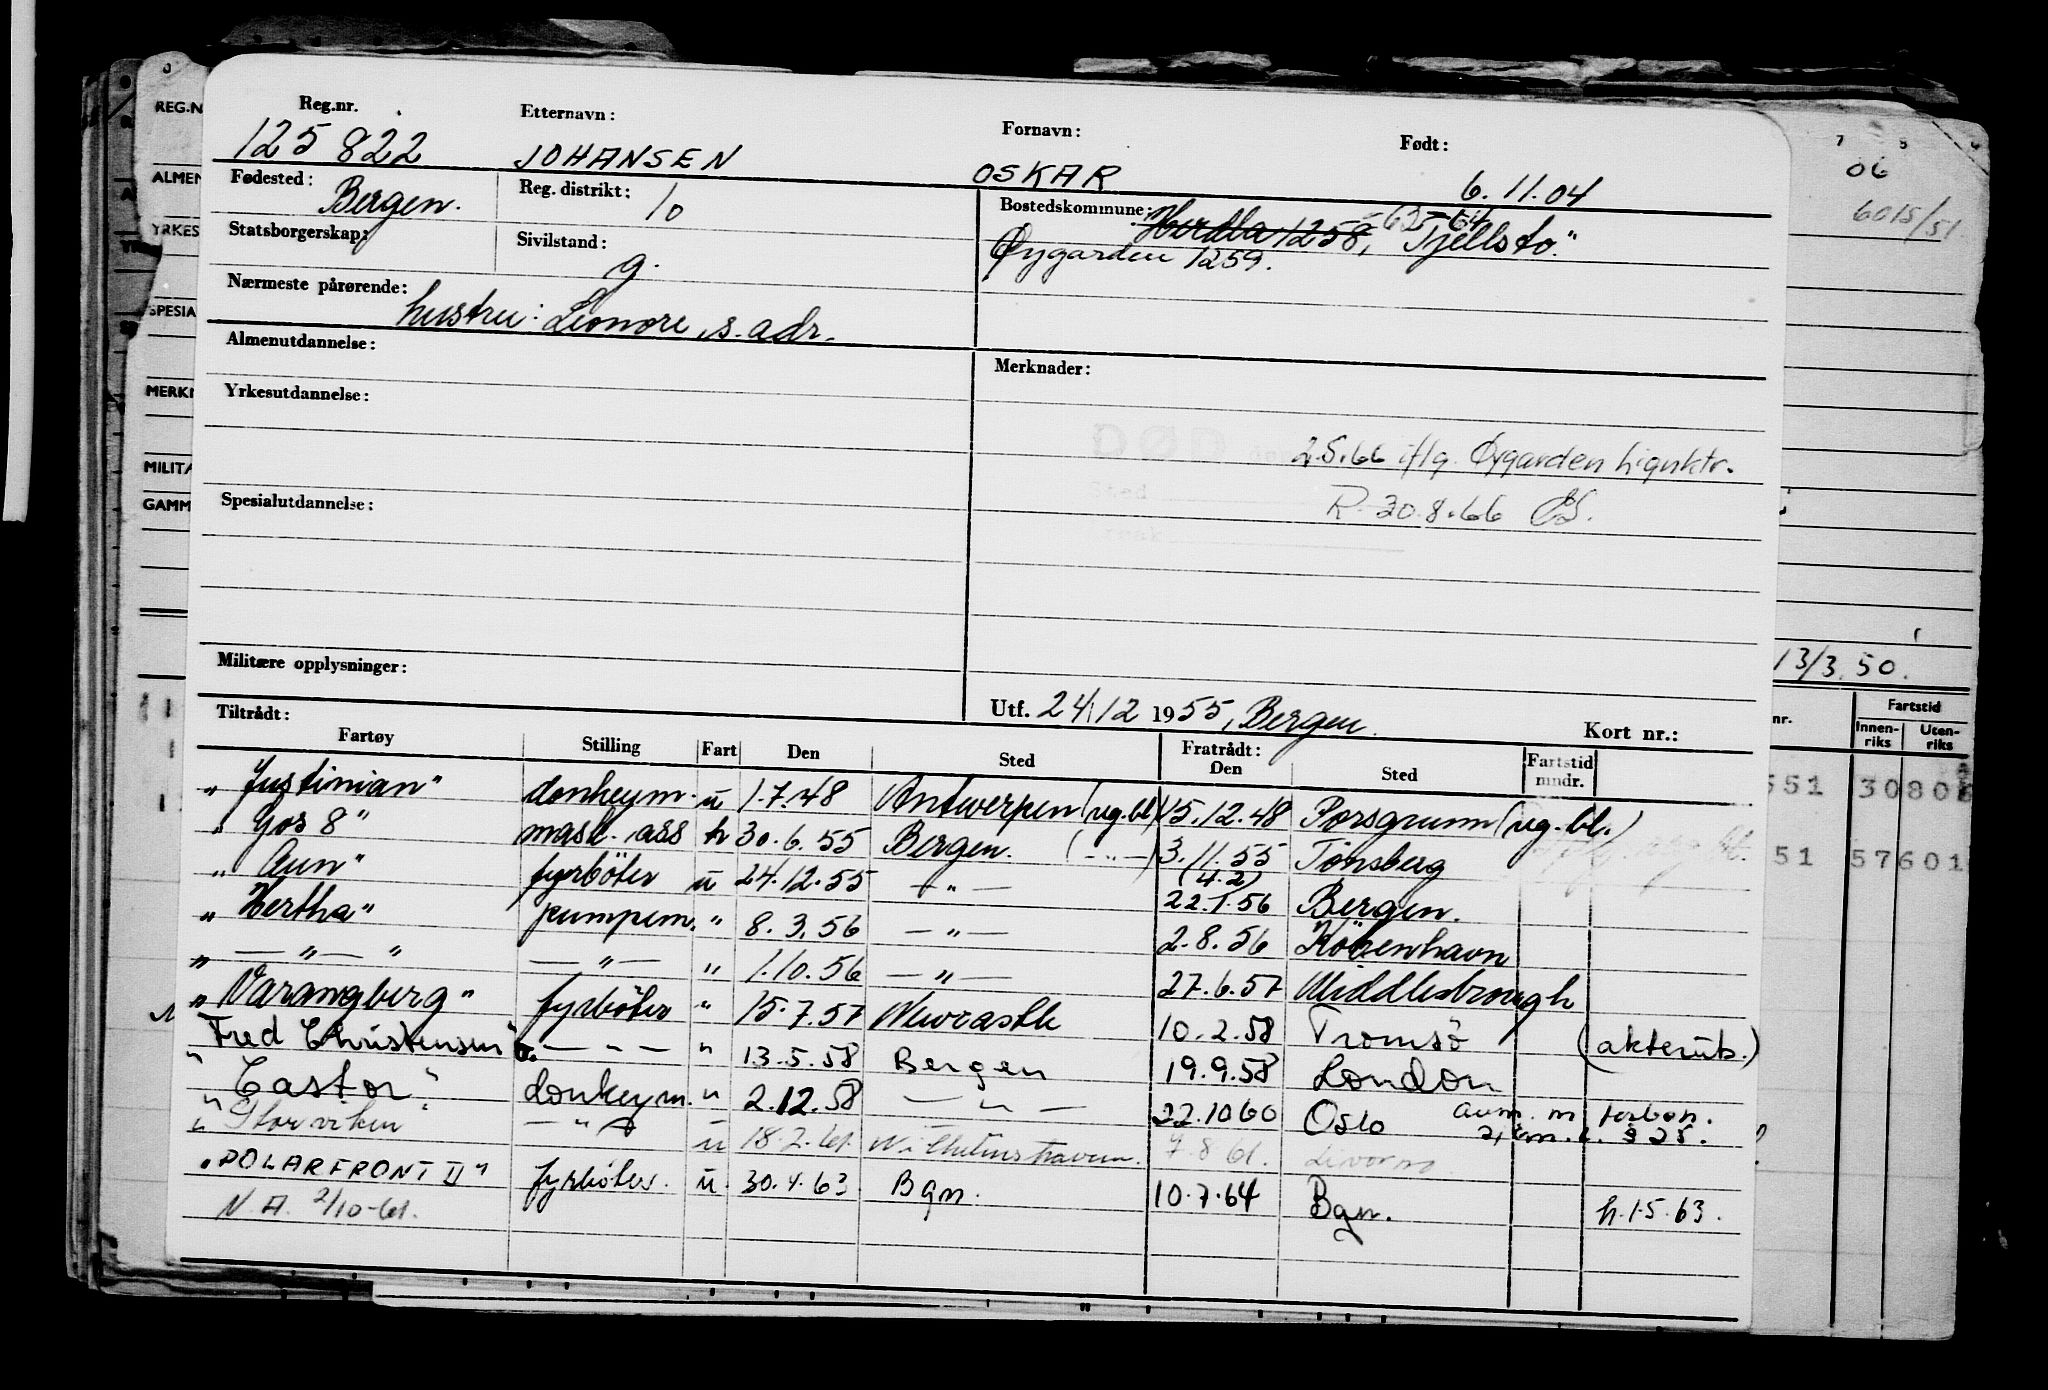 Reg.nr. Etternavn: Fornavn: Født:
125 822 JOHANSEN OSKAR 6.11.04
Fødested: Bergen. Reg. distrikt: 10 Bostedskommune: Herdla 1258, -63 -64 "Tjellstø"
Statsborgerskap: Sivilstand: g. Øygarden 1259.
Nærmeste pårørende: hustru: Leonore, s. adr.
Almenutdannelse: Merknader:
Yrkesutdannelse:
DØD 2.5.66 iflg. Øygarden Lignktr.
Sted
Spesialutdannelse: R. 30.8.66
Militære opplysninger:
Utf. 24/12 1955, Bergen.
Tiltrådt: Kort nr.:
Fartøy Stilling Fart Den Sted Fratrådt: Den Sted Fartstid mndr.
"Justinian" donkeym. u 1.7.48 Antwerpen (ug.bl) 15.12.48 Porsgrunn (ug.bl.)
"Gos 8" mask. ass h 30.6.55 Bergen. (-"-) 3.11.55 Tønsberg
"Aun" fyrböter u 24.12.55 -"- (4.2) 22.1.56 Bergen.
"Hertha" pumpem. " 8.3.56 -"- 2.8.56 Köbenhavn
" -"- " -"- " 1.10.56 -"- 27.6.57 Middlesbrough
"Varangberg" fyrböter " 15.7.57 Newcastle 10.2.58 Tromsö (akterutс.)
"Fred Christensen" -"- " 13.5.58 Bergen 19.9.58 London
"Castor" donkeym. " 2.12.58 -"- 22.10 60 Oslo
§ 25.
" Storviken -"- u 18.2.61. Wilhelmshaven. 7.8 61. Livorno
"POLARFRONT II" fyrböter. u. 30.4.63 Bgn. 10.7.64 Bgn. h.1.5.63.
N.A. 2/10-61.
REG.N
ALMEN
YRKES
SPESIA
MERK
MILITÆ
GAMM
06
6015/51.
13/3.50.
nr. Fartstid
Innenriks Utenriks
551 3080
51 57601